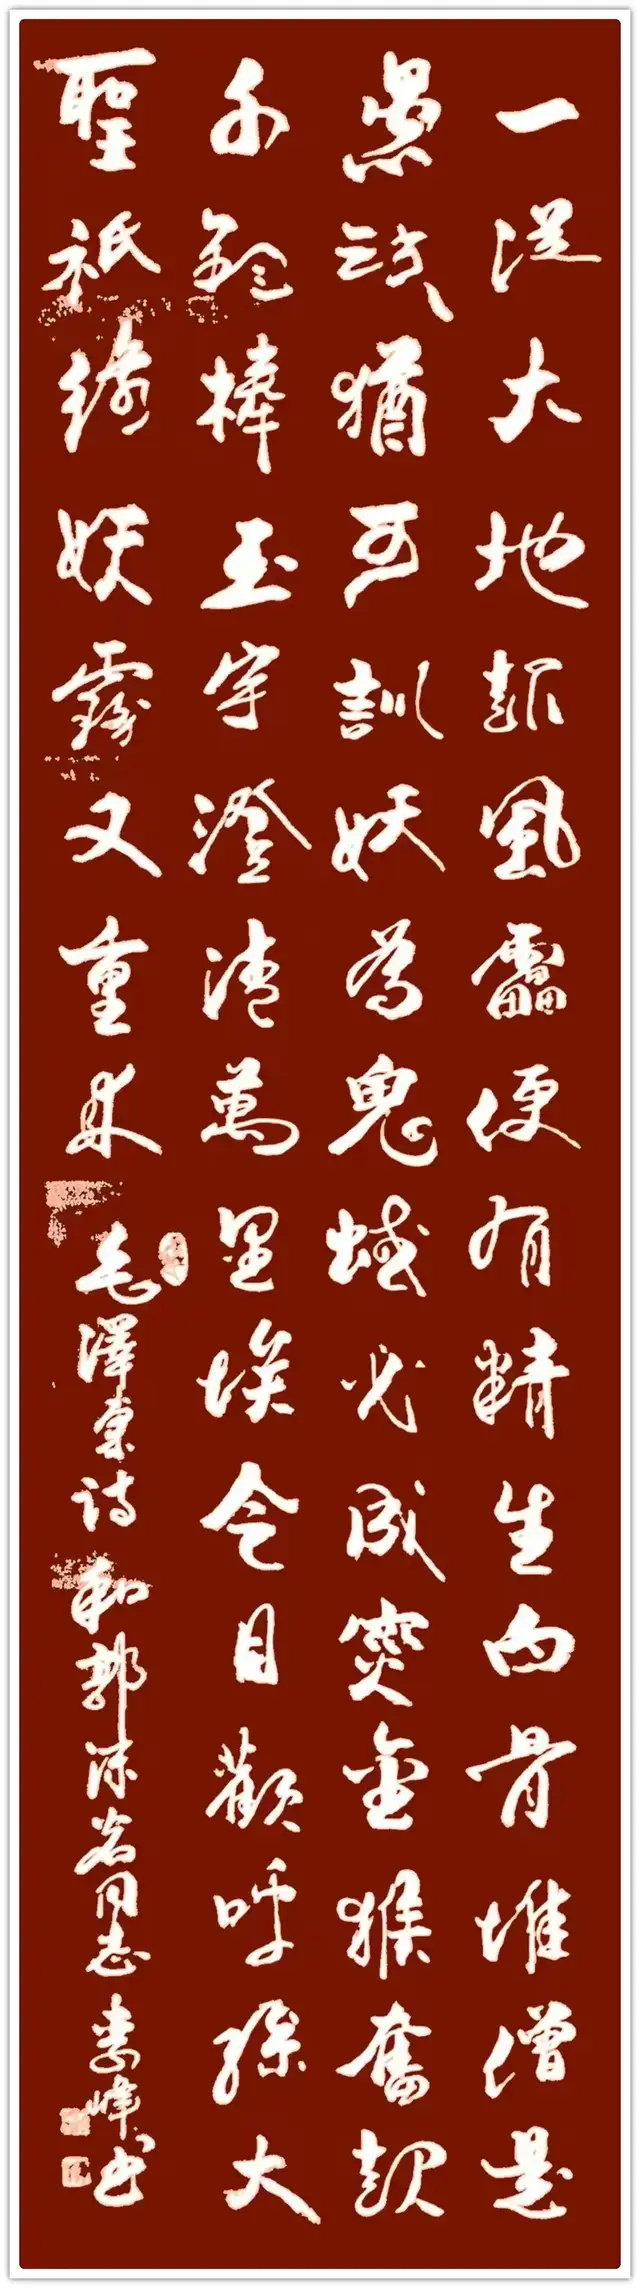 一從大地起風靁便有精生白骨堆僧是
愚氓猶可訓妖為鬼蜮必成災金猴奮起
千鈞棒玉宇澄清萬里埃今日歡呼孫大
聖祇緣妖霧又重來 毛澤東诗 和郭沫若同志 峰书